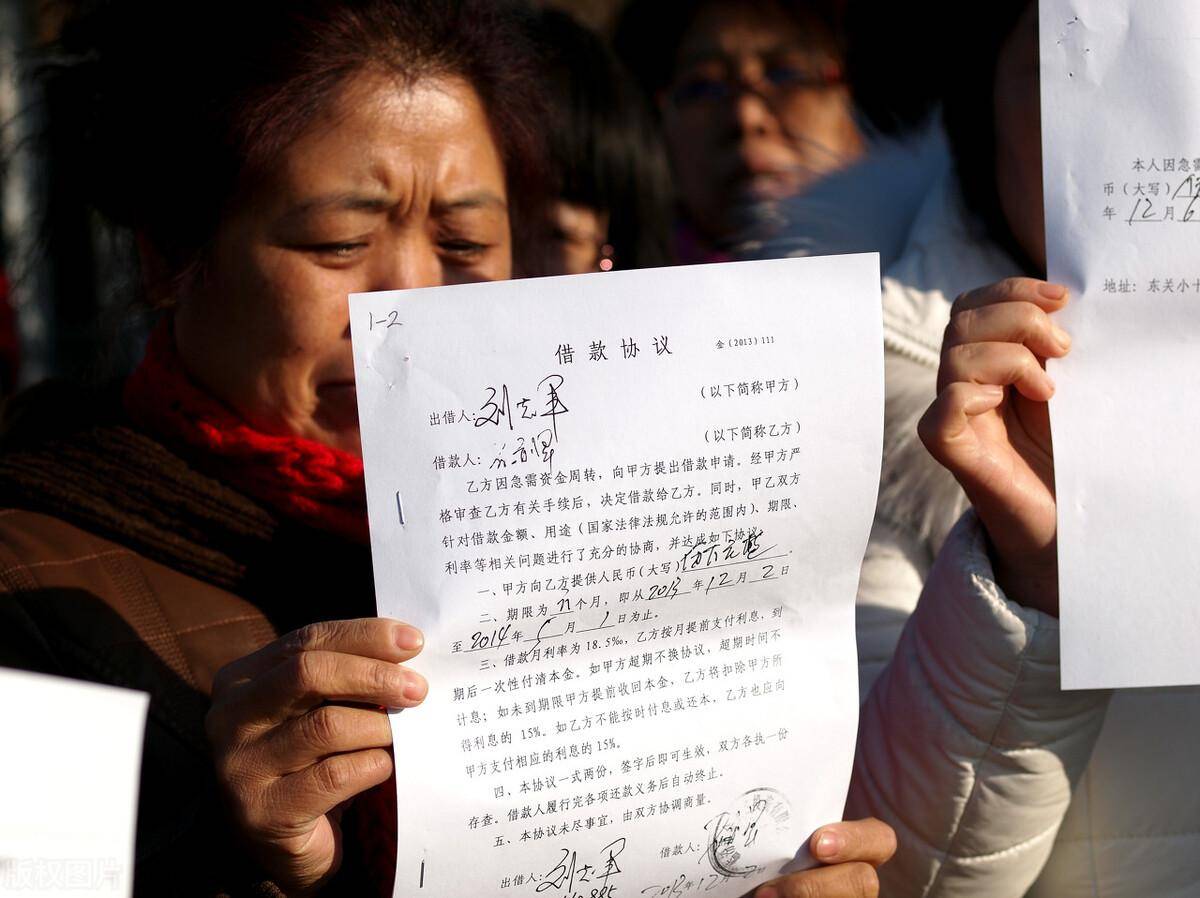 1-2
借款协议 金(2013)111
出借人:刘志军 (以下简称甲方)
借款人: (以下简称乙方)
乙方因急需资金周转，向甲方提出借款申请。经甲方严
格审查乙方有关手续后，决定借款给乙方。同时，甲乙双方
针对借款金额、用途（国家法律法规允许的范围内）、期限、
利率等相关问题进行了充分的协商，并达成如下协议
一、甲方向乙方提供人民币(大写)
二、期限为 个月，即从2013年12月2日
至2014年 月1日为止。
三、借款月利率为18.5‰，乙方按月提前支付利息，到
期后一次性付清本金。如甲方超期不换协议，超期时间不
计息；如未到期限甲方提前收回本金，乙方将扣除甲方所
得利息的 15%。如乙方不能按时付息或还本，乙方也应向
甲方支付相应的利息的15%。
四、本协议一式两份，签字后即可生效，双方各执一份
存查。借款人履行完各项还款义务后自动终止。
五、本协议未尽事宜，由双方协调商量。
出借人:刘志军 借款人:
2013年12月2日
本人因急需
币（大写）
年12月6
地址：东关小十
版权图片